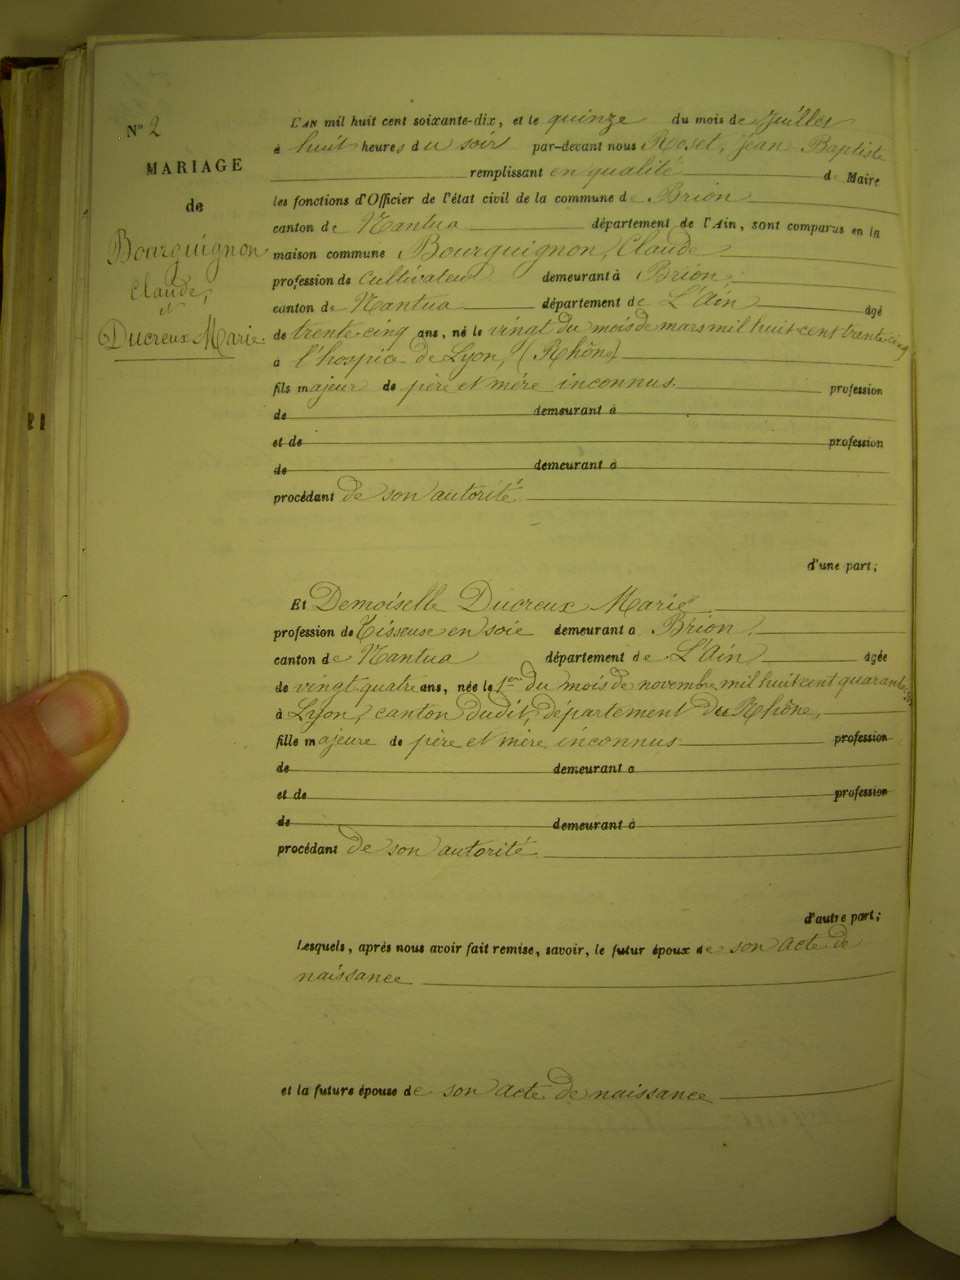 N° 2
MARIAGE
de
Bourguignon
Claude,
et
Ducreux Marie.
L'AN mil huit cent soixante-dix, et le quinze du mois de Juillet
à huit heures du soir par-devant nous Roset, jean Baptiste
remplissant en qualité de Maire
les fonctions d'Officier de l'état civil de la commune de Brion
canton de Nantua département de l'Ain, sont comparus en la
maison commune Bourguignon, Claude
profession de cultivateur demeurant à Brion,
canton de Nantua département de L'Ain âgé
de trente-cinq ans, né le vingt du mois de mars mil huit cent trente cinq
à l'hospice de Lyon, (Rhône)
fils majeur de père et mère inconnus. profession
de demeurant à
et de profession
de demeurant à
procédant de son autorité
d'une part;
Et Demoiselle Ducreux Marie
profession de Tisseuse en soie demeurant à Brion,
canton de Nantua département de L'Ain âgée
de vingt quatre ans, née le 1er du mois de novembre mil huit cent quarante
à Lyon, canton dudit, département du Rhône,
fille majeure de père et mère inconnus profession
de demeurant à
et de profession
de demeurant à
procédant de son autorité
d'autre part;
Lesquels, après nous avoir fait remise, savoir, le futur époux de son acte de
naissance
et la future épouse de son acte de naissance